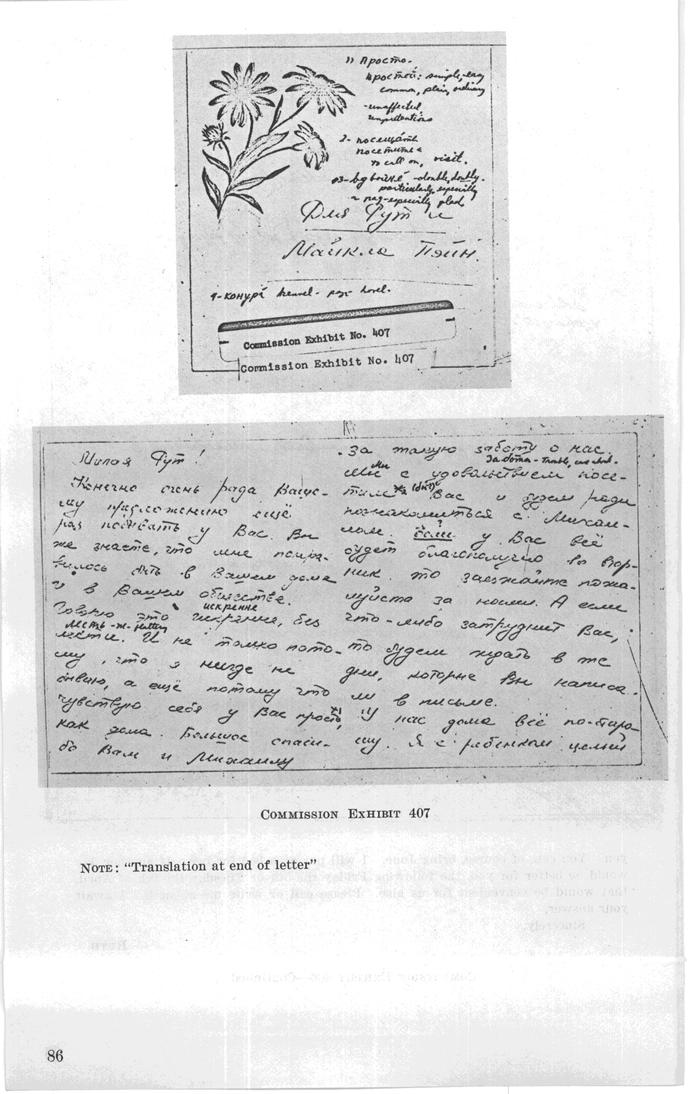 1) Просто.
простой: simple, easy
common, plain, ordinary
-unaffected
unpretentious
2- посещать
посетить
to call on, visit.
3- вдвойне -double, doubly.
particularly, especially
рад-especially glad
Для Рут и
Майкла Пэйн.
4-конура kennel - hovel.
Commission Exhibit No. 407
Commission Exhibit No. 407
Милая Рут!
Конечно очень рада Ваше-
му предложению ещё
раз побывать у Вас. Вы
же знаете, что мне понра-
вилось быть в Вашем доме
и в Вашем обществе.
искренне
Говорю это искренне, без
лесть -ж- flattery
лести. И не только пото-
му, что я нигде не
бываю, а ещё потому что
чувствую себя у Вас просто
как дома. Большое спаси-
бо Вам и Михаилу
за такую заботу о нас.
забота - trouble,
Мы
Мы с удовольствием посе-
тим Вас и будем рады
познакомиться с Михаи-
лом. Если у Вас всё
будет благополучно во втор-
ник, то заезжайте пожа-
луйста за нами. А если
что-либо затруднит Вас,
то будем ждать в те
дни, которые Вы написа-
ли в письме.
У нас дома всё по-старо-
му. Я с ребенком целый
COMMISSION EXHIBIT 407
NOTE: "Translation at end of letter"
86